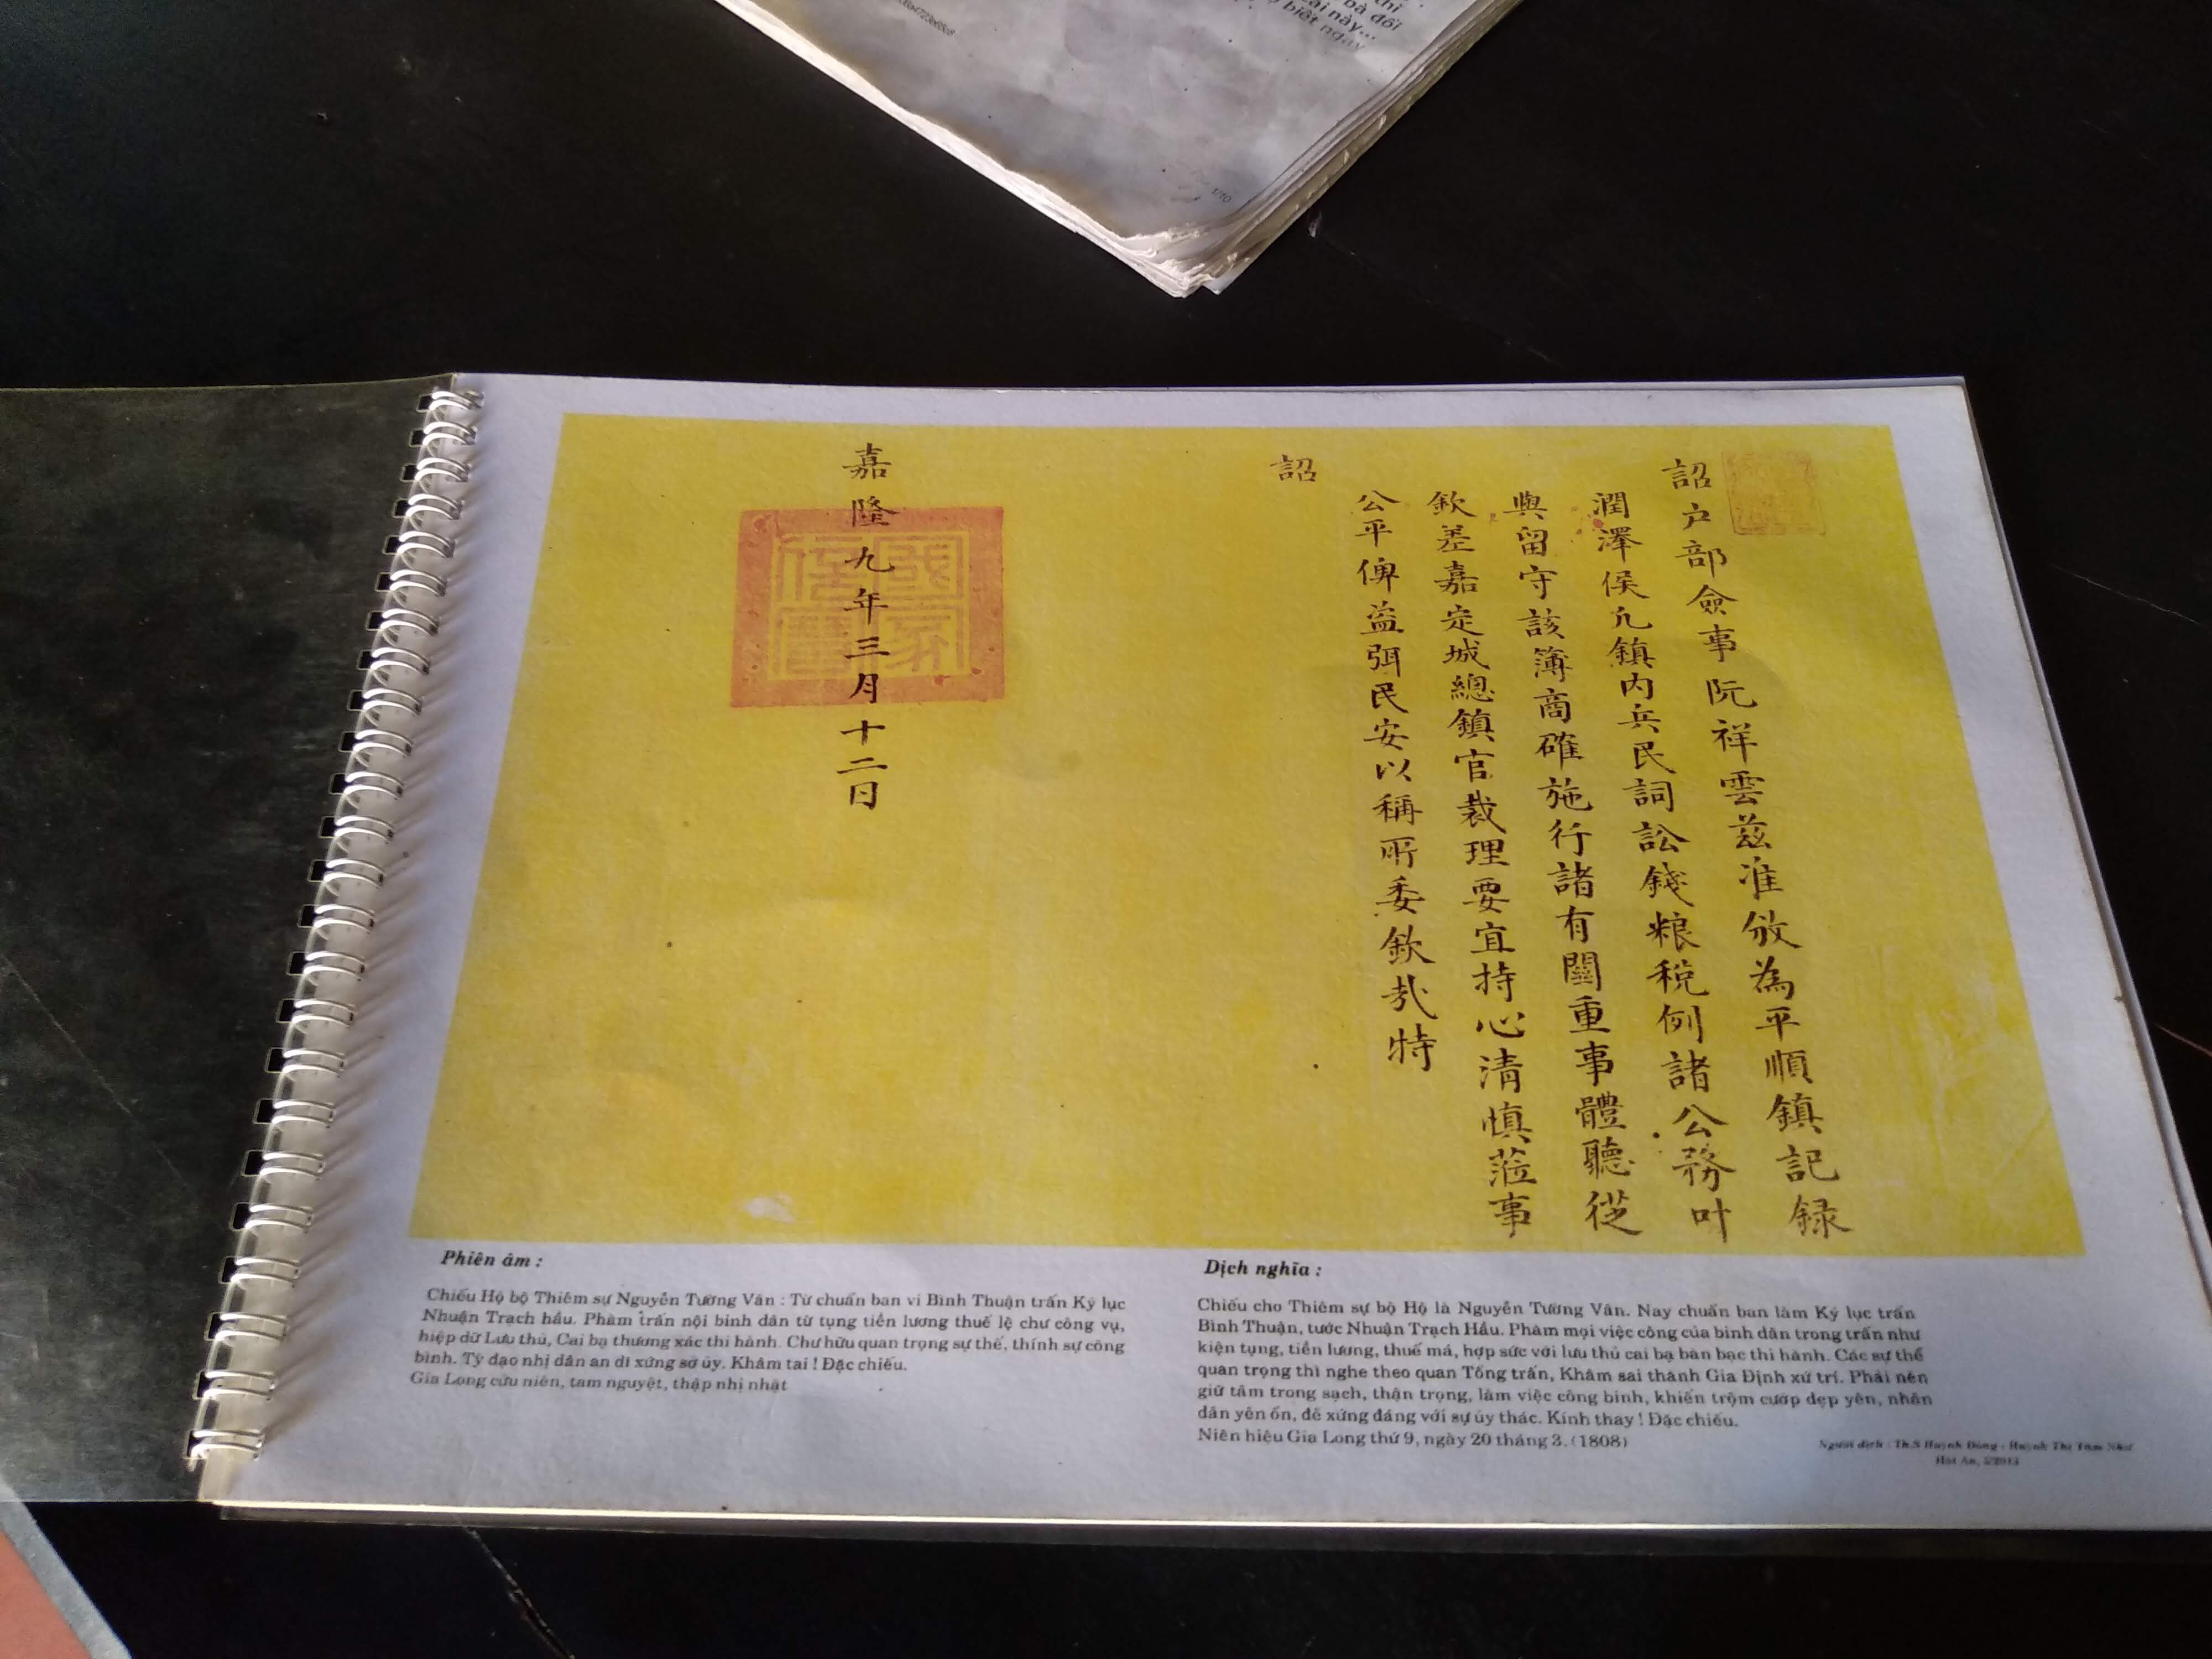 bà đổi
biết ngay
1/10
詔户部僉事阮祥雲兹准攽為平順鎮記録
潤澤侯凢鎮内兵民詞訟錢粮税例諸公務叶
與留守該簿商確施行諸有關重事體聽從
欽差嘉定城總鎮官裁理要宜持心清慎蒞事
公平俾盗弭民安以稱所委欽哉特
詔
嘉隆九年三月十二日
國家信寶
Phiên âm :
Chiếu Hộ bộ Thiêm sự Nguyễn Tường Vân : Từ chuẩn ban vi Bình Thuận trấn Ký lục
Nhuận Trạch hầu. Phàm trấn nội binh dân từ tụng tiền lương thuế lệ chư công vụ,
hiệp dữ Lưu thủ, Cai bạ thương xác thi hành. Chư hữu quan trọng sự thể, thính sự công
bình. Tỷ đạo nhị dân an dĩ xứng sở ủy. Khâm tai ! Đặc chiếu.
Gia Long cửu niên, tam nguyệt, thập nhị nhật
Dịch nghĩa :
Chiếu cho Thiêm sự bộ Hộ là Nguyễn Tường Vân. Nay chuẩn ban làm Ký lục trấn
Bình Thuận, tước Nhuận Trạch Hầu. Phàm mọi việc công của binh dân trong trấn như
kiện tụng, tiền lương, thuế má, hợp sức với lưu thủ cai bạ bàn bạc thi hành. Các sự thể
quan trọng thì nghe theo quan Tổng trấn, Khâm sai thành Gia Định xử trí. Phải nên
giữ tâm trong sạch, thận trọng, làm việc công bình, khiến trộm cướp dẹp yên, nhân
dân yên ổn, để xứng đáng với sự ủy thác. Kính thay ! Đặc chiếu.
Niên hiệu Gia Long thứ 9, ngày 20 tháng 3. (1808)
Người dịch : Th.S Huỳnh Đông - Huỳnh Thị Tâm Như
Hội An, 5/2013